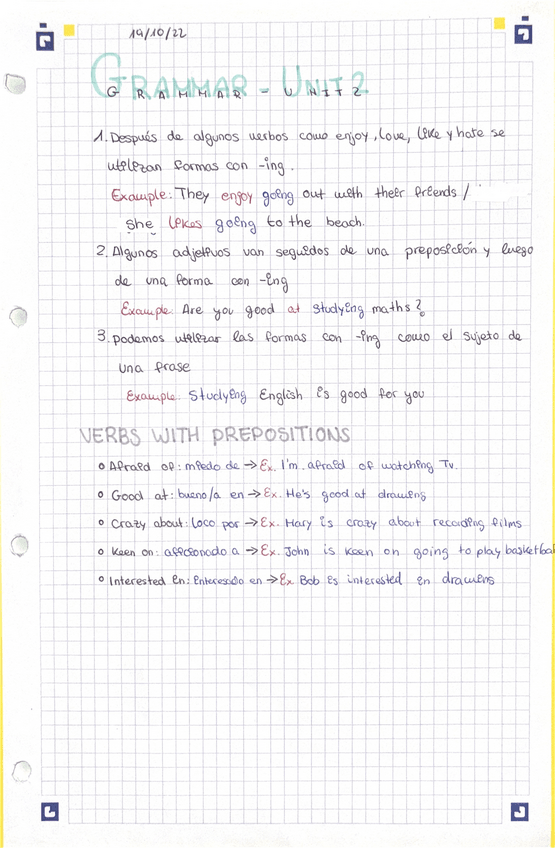 19/10/22
GRAMMAR - UNIT 2
GRAMMAR - UNIT 2
1. Después de algunos verbos como enjoy, love, like y hate se
utilizan formas con -ing.
Example: They enjoy going out with their friends /
she likes going to the beach.
2. Algunos adjetivos van seguidos de una preposición y luego
de una forma con -ing
Example: Are you good at studying maths?
3. podemos utilizar las formas con -ing como el sujeto de
una frase
Example: Studying English is good for you
VERBS WITH PREPOSITIONS
o Afraid of: miedo de → Ex. I'm afraid of watching Tv.
o Good at: bueno/a en → Ex. He's good at drawing
o Crazy about: loco por → Ex. Mary is crazy about recording films
o Keen on: afficionado a → Ex. John is keen on going to play basketbal
o Interested in: interesado en → Ex Bob is interested in drawins